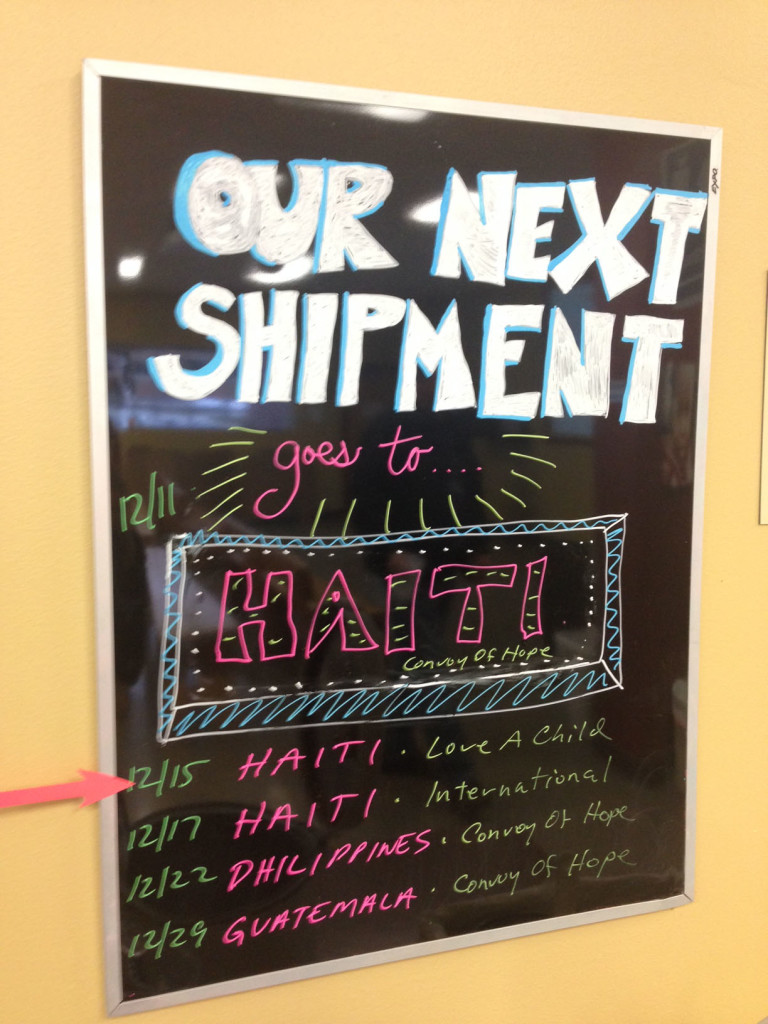 OUR NEXT
SHIPMENT
goes to....
12/11
HAITI
Convoy Of Hope
12/15 HAITI · Love A Child
12/17 HAITI · International
12/22 PHILIPPINES · Convoy Of Hope
12/29 GUATEMALA · Convoy Of Hope